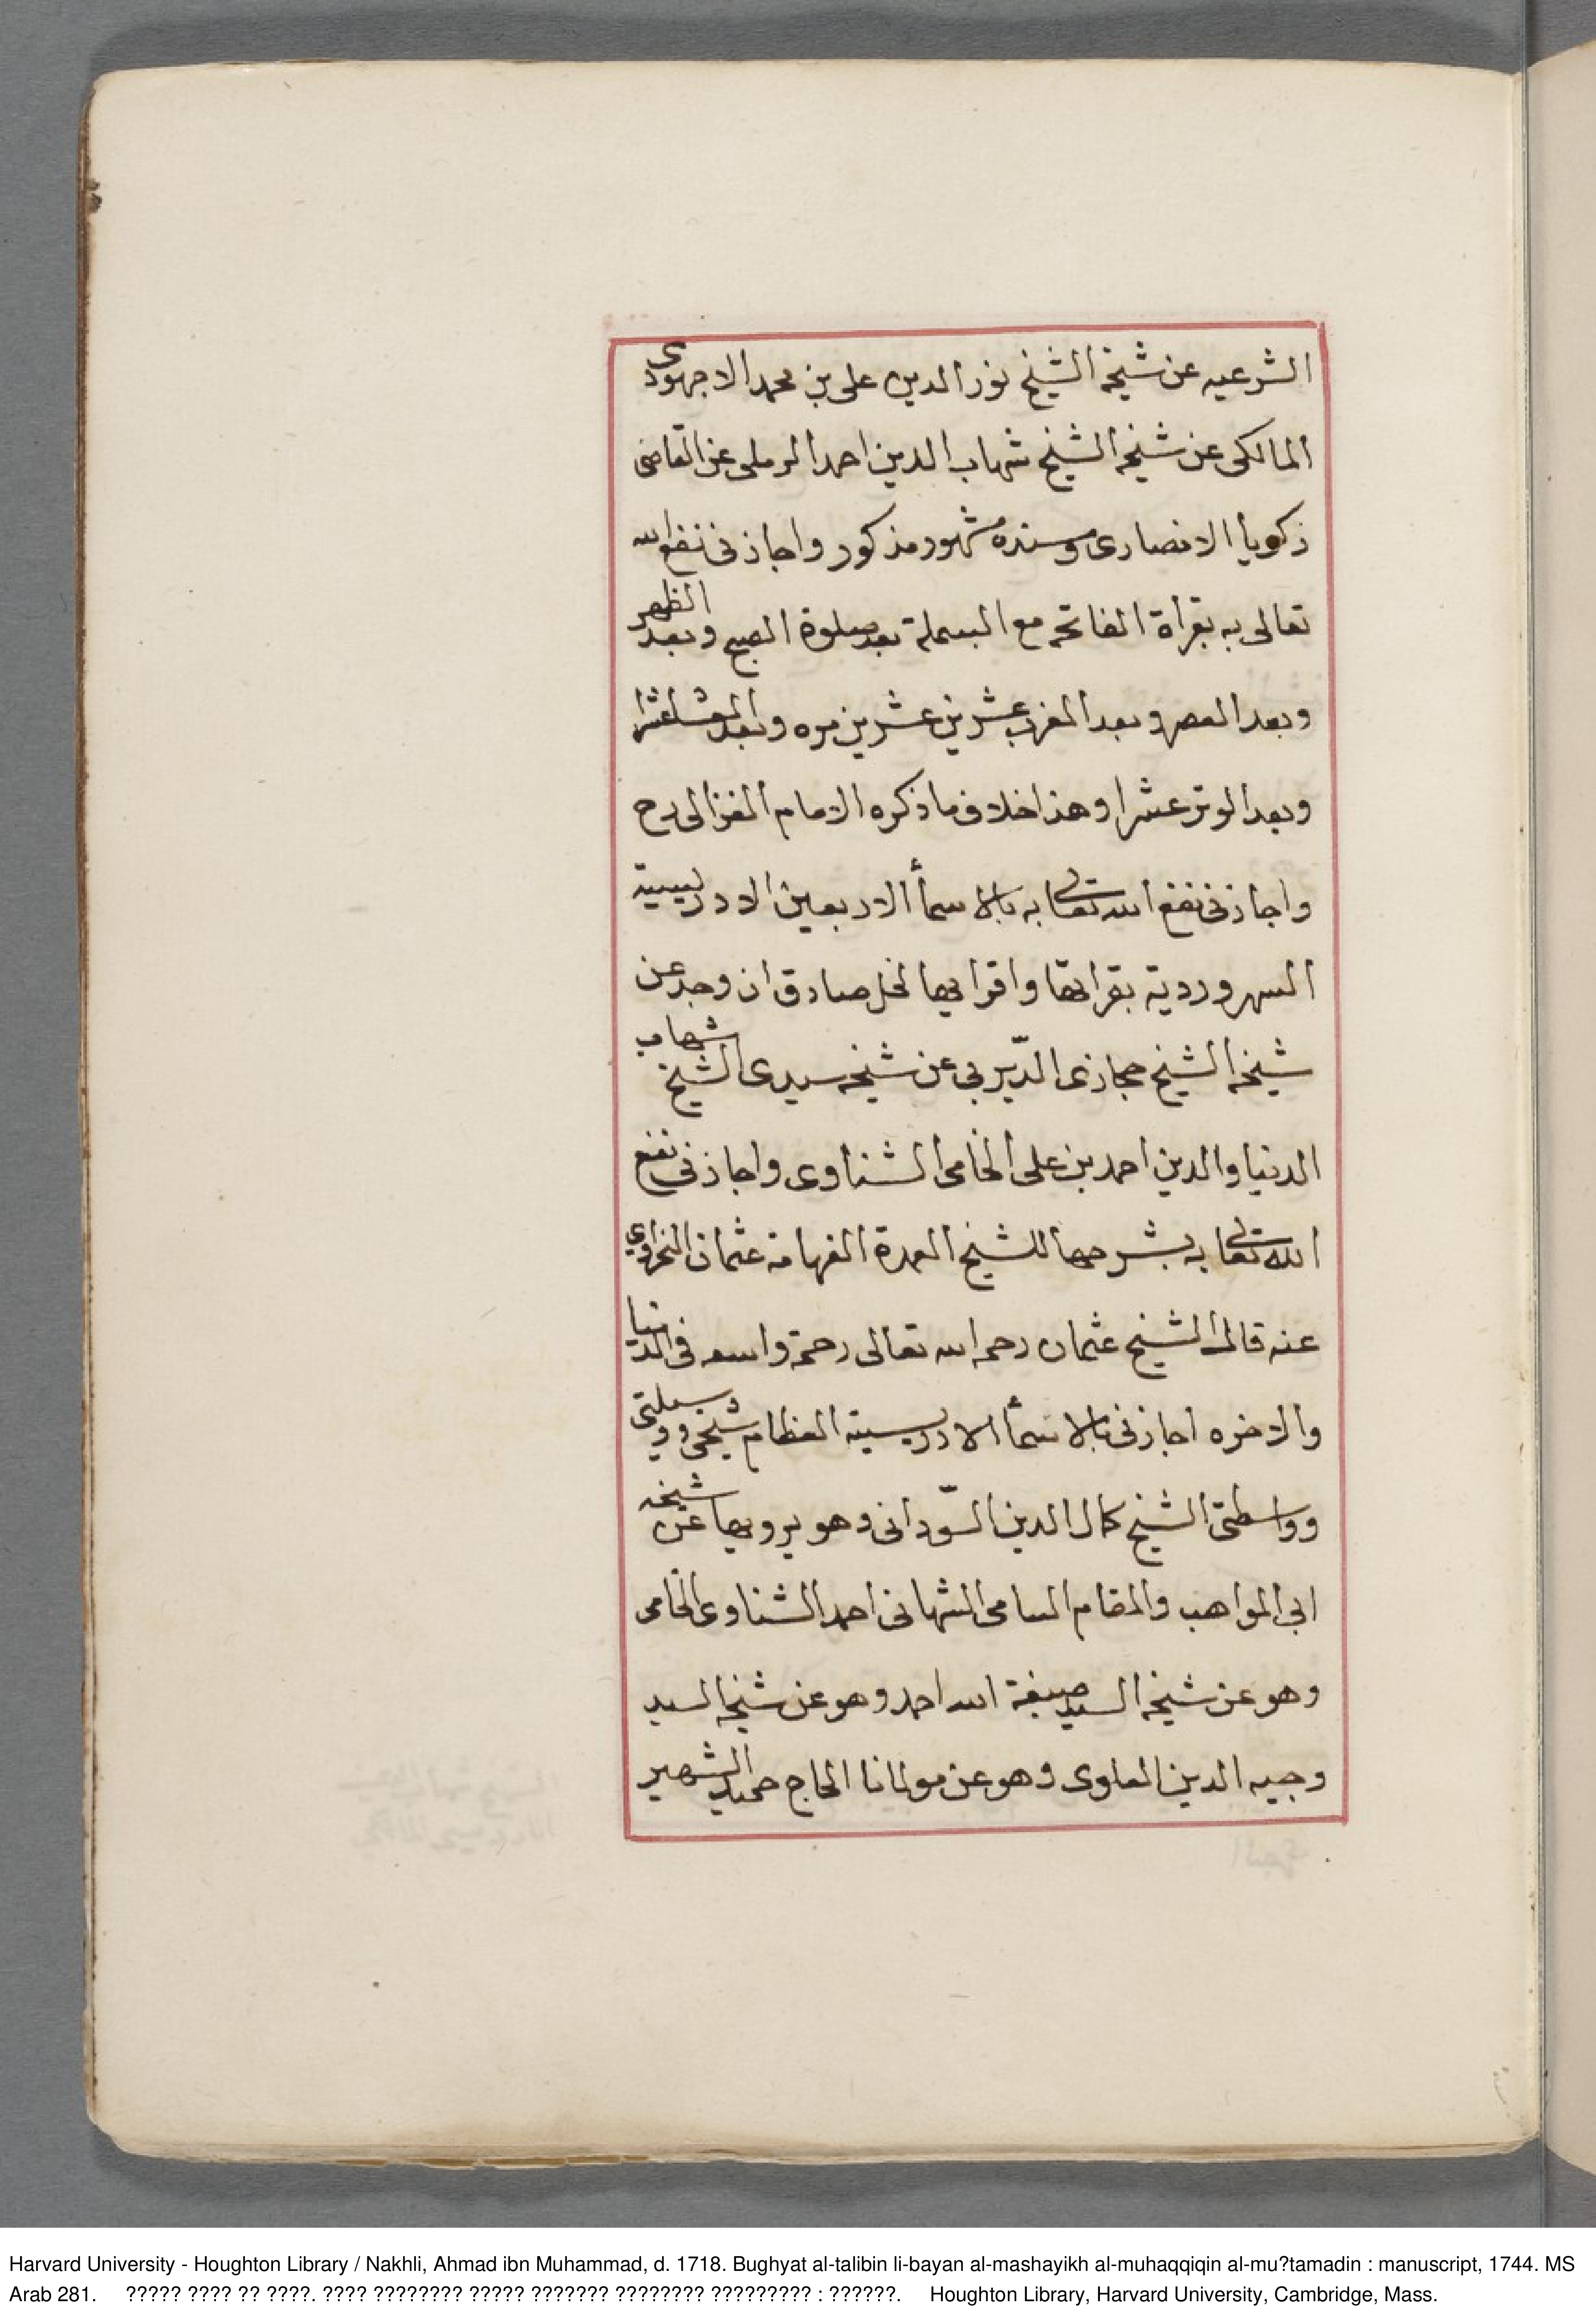 الشرعيه عن شيخه الشيخ نور الدين على بن محمد الاجهورى
المالكى عن شيخه الشيخ شهاب الدين احمد الرملى عن القاضى
زكريا الانصارى وسنده مشهور مذكور واجازنى نفع الله
تعالى به بقرأة الفاتحه مع البسملة بعد صلوة الصبح وبعد الظهر
وبعد العصر وبعد المغرب عشرين عشرين مره وبعد العشا عشرا
وبعد الوتر عشرا وهذا خلاف ما ذكره الامام الغزالى رح
واجازنى نفع الله تعالى به بالاسمأ الاربعين الادريسية
السهروردية بقرائها واقرائها لخل صادق ان وجد عن
شيخه الشيخ حجازى الدّيربى عن شيخه سيدى الشيخ شهاب
الدنيا والدين احمد بن على الخامى الشناوى واجازنى نفع
الله تعالى به بشرحها للشيخ العمدة الفهامة عثمان النحراوي
عنه قال الشيخ عثمان رحمه الله تعالى رحمة واسعه فى الدنيا
والاخره اجازنى بالاسمأ الادريسية العظام شيخى ووسيلتى
وواسطتى الشيخ كمال الدين السّودانى وهو يرويها عن شيخه
ابى المواهب والمقام السامى الشهابى احمد الشناوى الخامى
وهو عن شيخه السيد صبغة الله احمد وهو عن شيخه السيد
وجيه الدين العلوى وهو عن مولانا الحاج حميد الشهير
Harvard University - Houghton Library / Nakhli, Ahmad ibn Muhammad, d. 1718. Bughyat al-talibin li-bayan al-mashayikh al-muhaqqiqin al-mu?tamadin : manuscript, 1744. MS
Arab 281. ????? ???? ?? ????. ???? ???????? ????? ??????? ???????? ????????? : ??????. Houghton Library, Harvard University, Cambridge, Mass.